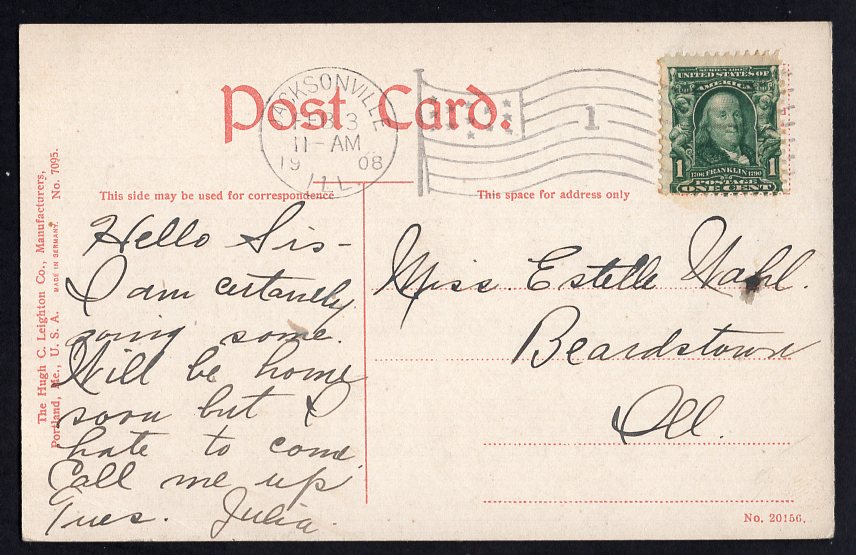 Post Card.
JACKSONVILLE
FEB 3
11-AM
1908
ILL.
1
SERIES 1902
UNITED STATES OF
AMERICA
1706 FRANKLIN 1790
1 POSTAGE 1
ONE CENT
This side may be used for correspondence
This space for address only
The Hugh C. Leighton Co., Manufacturers,
Portland, Me., U. S. A. MADE IN GERMANY. No. 7095.
Hello Sis-
I am certanely
going some.
Will be home
soon but I
hate to come
Call me up
Tues. Julia.
Miss. Estelle Wahl.
Beardstown
Ill.
No. 20156.